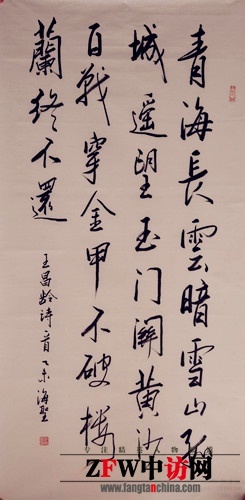 青海長雲暗雪山孤
城遥望玉门關黄沙
百戰穿金甲不破楼
蘭終不還
王昌齡诗一首
ZFW中访网
www.fangtanchina.com